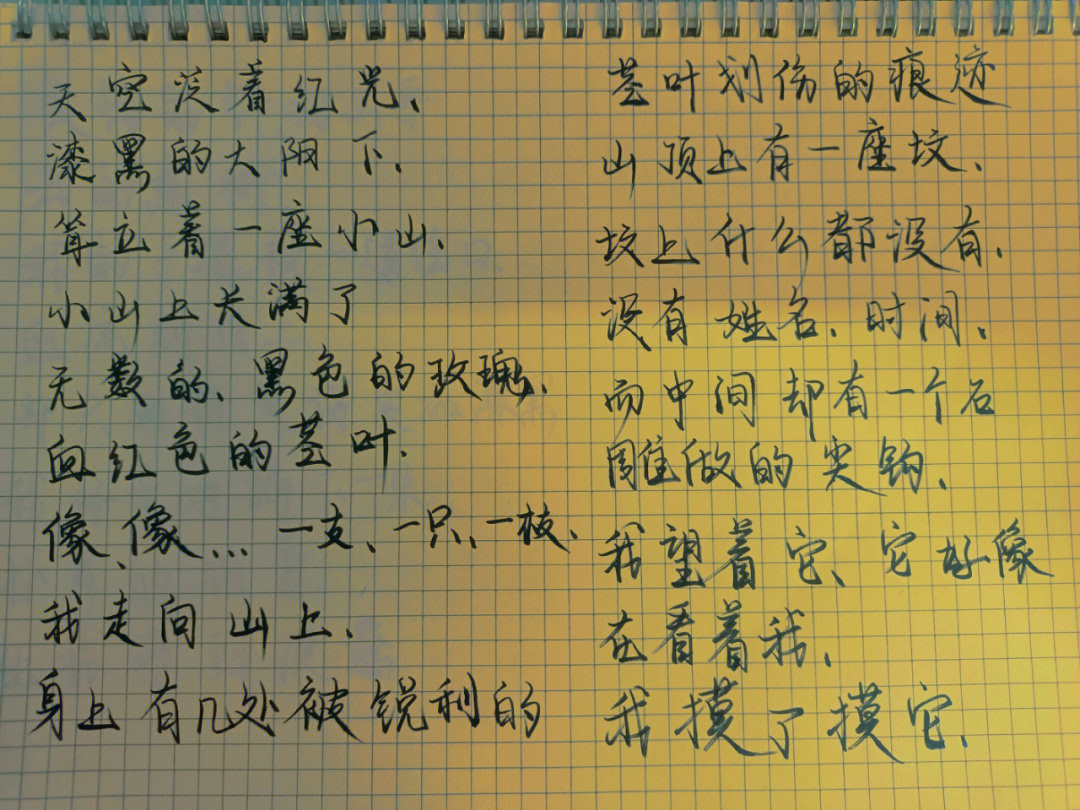 天空泛着红光、
漆黑的大阳下、
耸立着一座小山、
小山上长满了
无数的、黑色的玫瑰、
血红色的茎叶.
像、像... 一支、一只、一枝、
我走向山上、
身上有几处被锐利的
茎叶划伤的痕迹
山顶上有一座坟、
坟上什么都没有、
没有姓名、时间、
而中间却有一个石
雕做的尖钩、
我望着它、它好像
在看着我、
我摸了摸它、